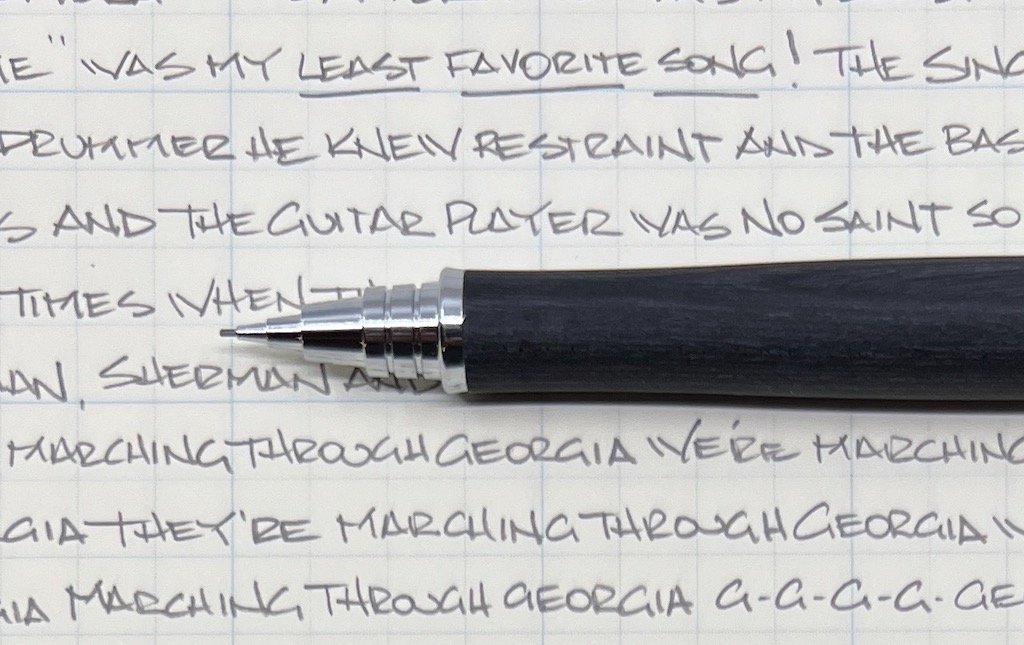 " WAS MY LEAST FAVORITE SONG! THE SING
DRUMMER HE KNEW RESTRAINT AND THE BAS
S AND THE GUITAR PLAYER WAS NO SAINT SO
TIMES WHEN
SHERMAN AND
MARCHING THROUGH GEORGIA WE'RE MARCHING
GIA THEY'RE MARCHING THROUGH GEORGIA W
GIA MARCHING THROUGH GEORGIA G-G-G-G-GE